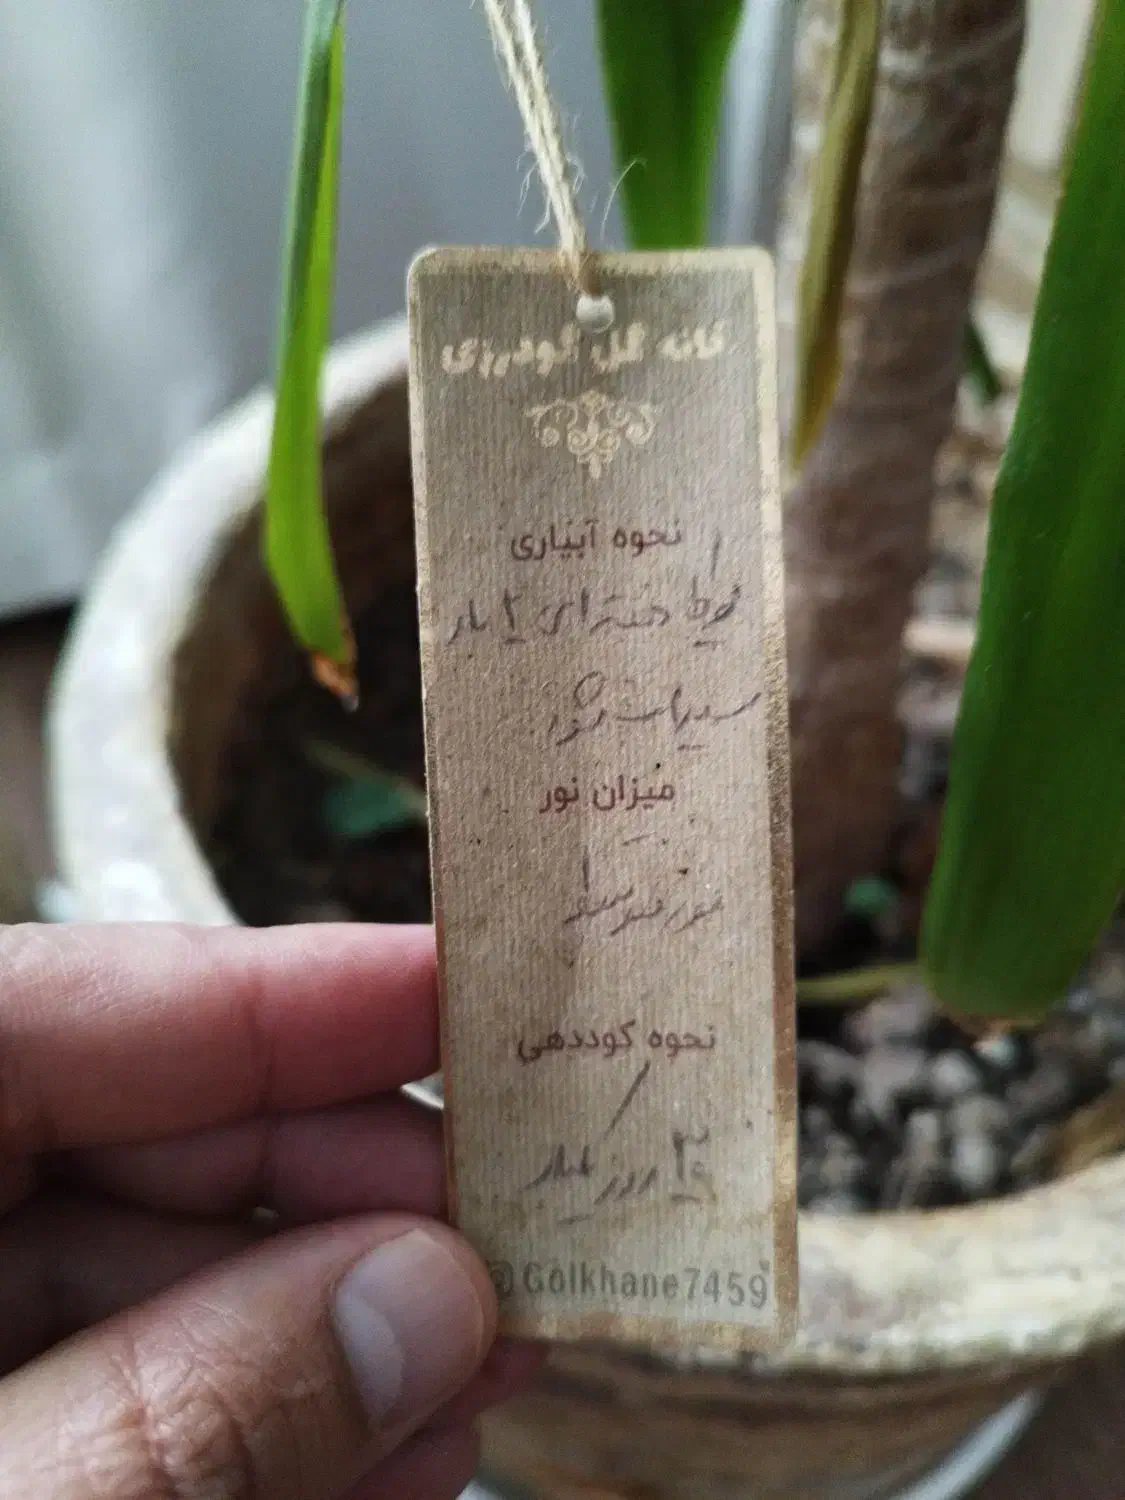 خانه گل گودرزی
نحوه آبیاری
هفته‌ای ۲ بار
سیراب شود
میزان نور
نور غیر مستقیم
نحوه کوددهی
۳۰ روز یکبار
@Golkhane7459